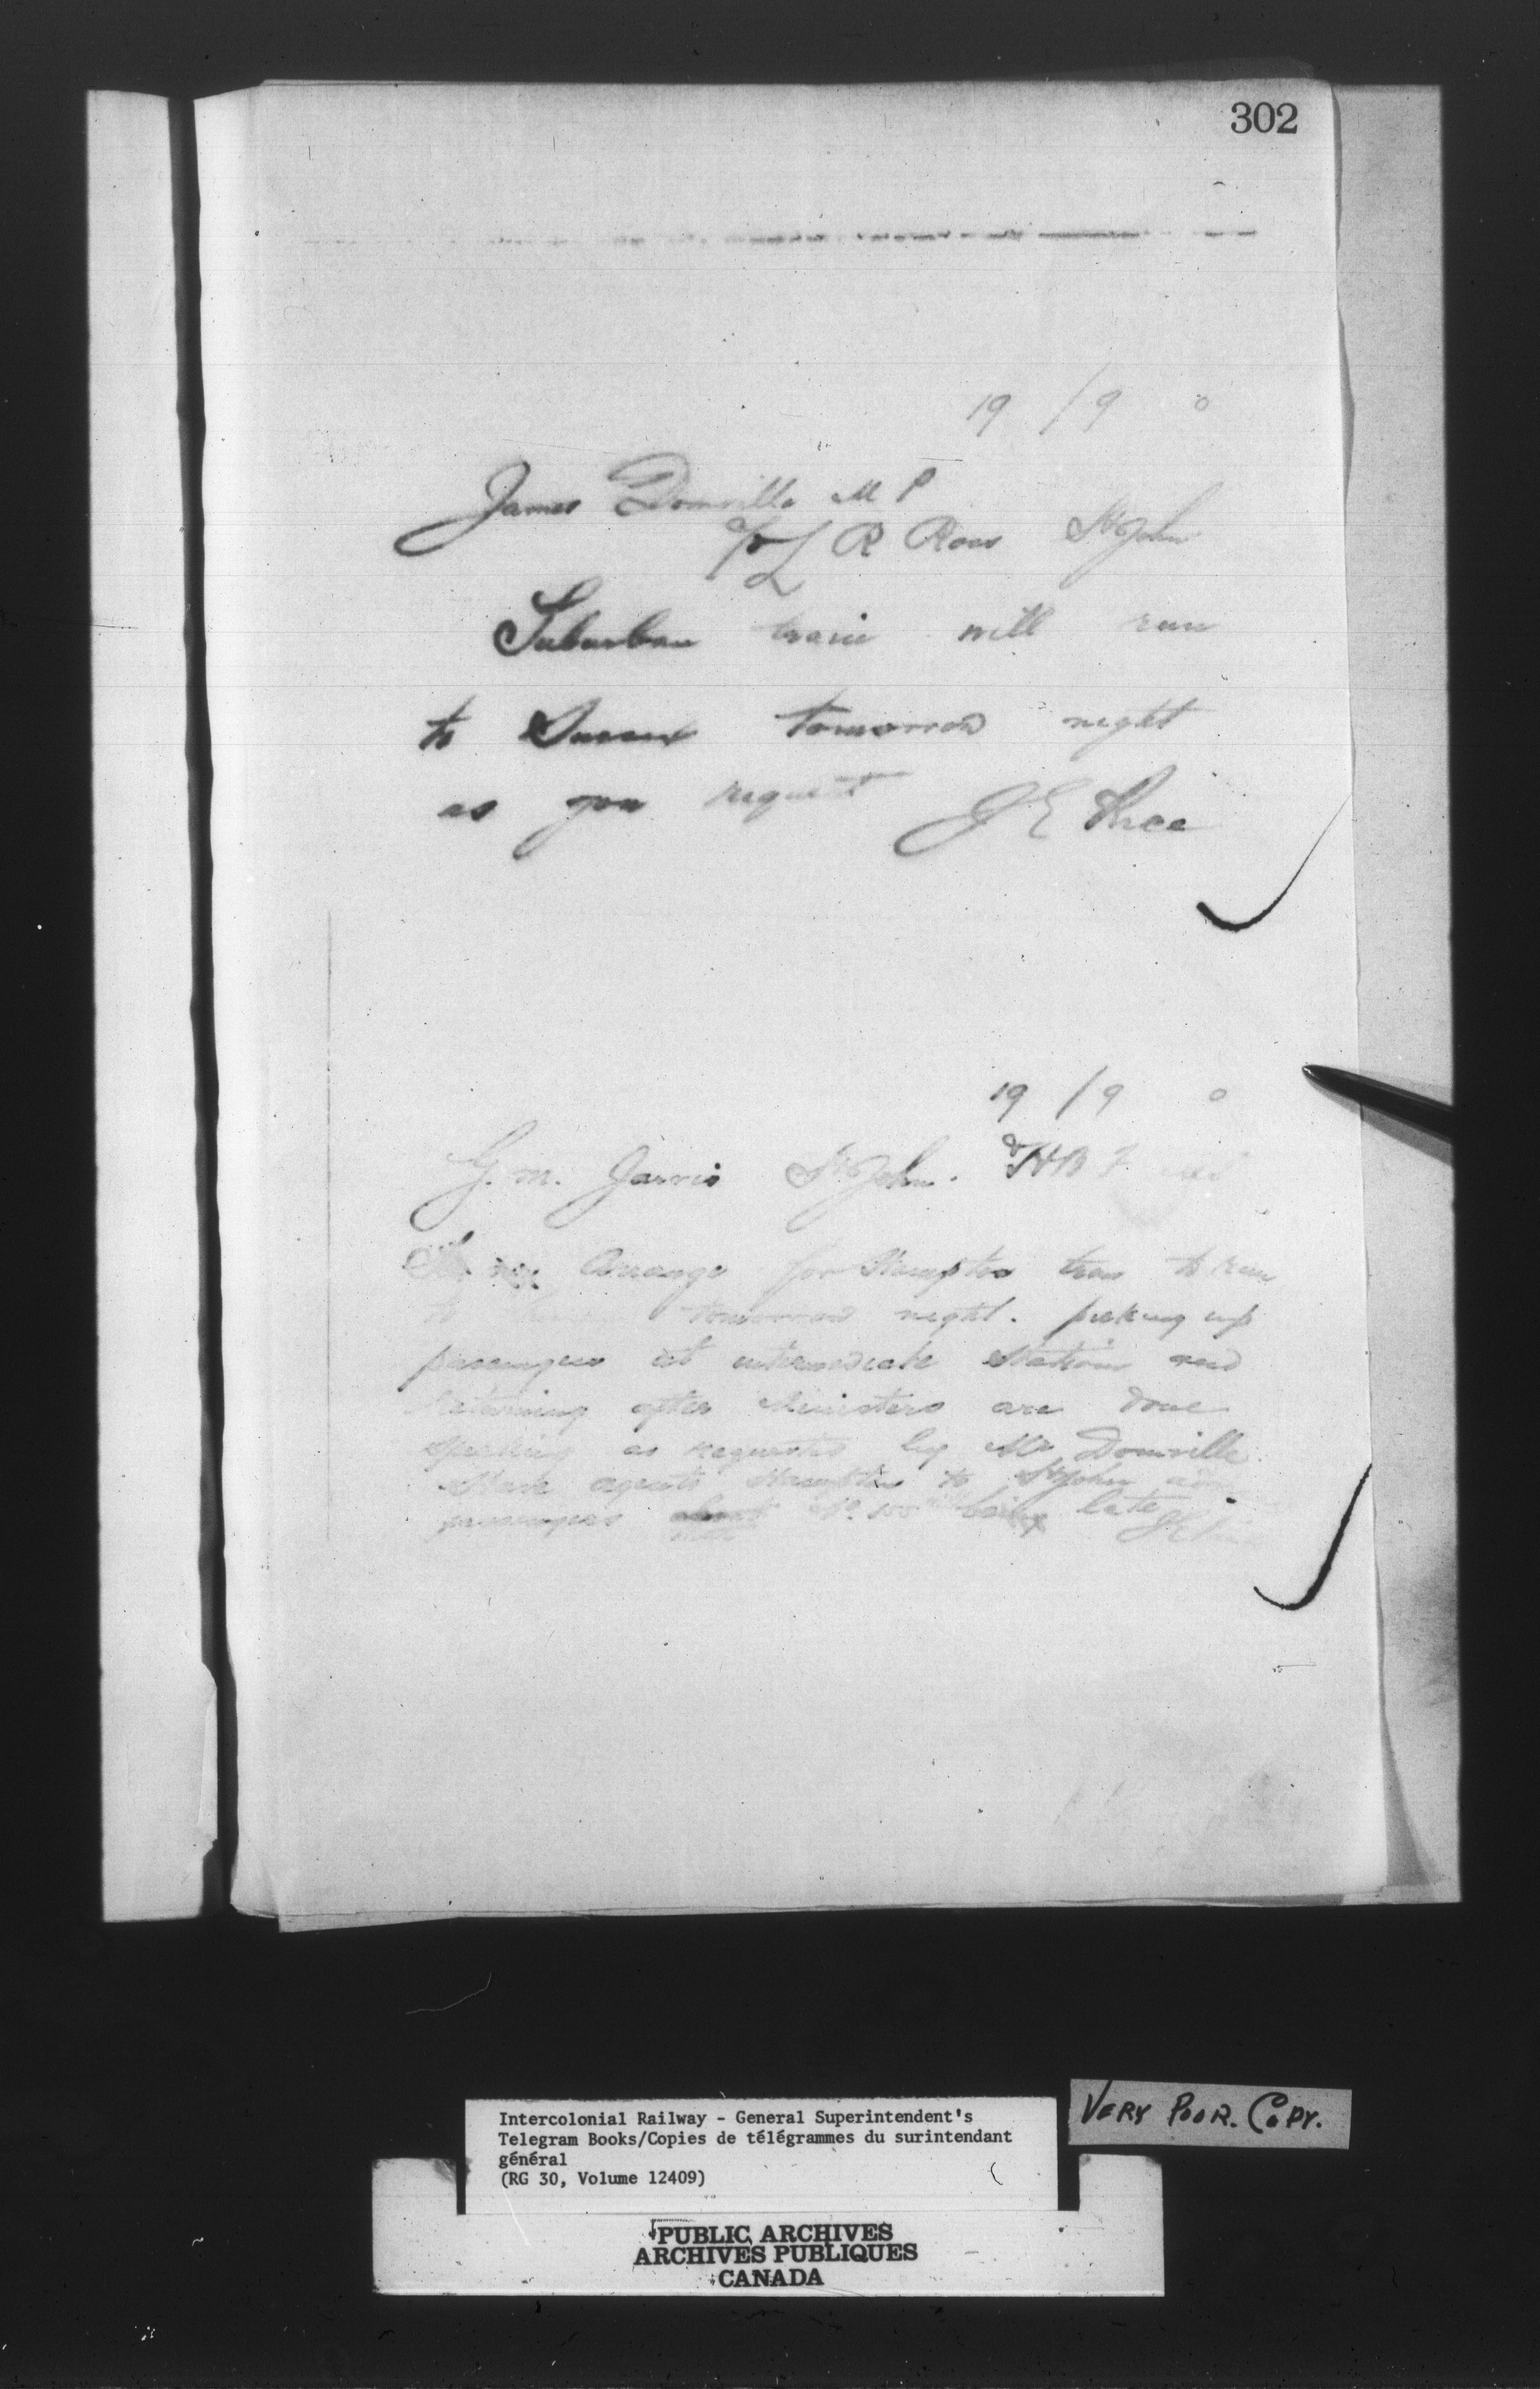 302
19 / 9 0
James Domville M P
c/o L R Ross St John
Suburban train will run
to Sussex tomorrow night
as you request J E Price
19 / 9 0
G. M. Jarvis St John. & H B F
Arrange for Hampton train to run
to tomorrow night. picking up
passengers at intermediate stations and
Returning after Ministers are done
speaking as requested by Mr Domville.
Have agents Hampton to St John
passengers No. being late
VERY POOR. COPY.
Intercolonial Railway - General Superintendent's
Telegram Books/Copies de télégrammes du surintendant
général
(RG 30, Volume 12409)
PUBLIC ARCHIVES
ARCHIVES PUBLIQUES
CANADA